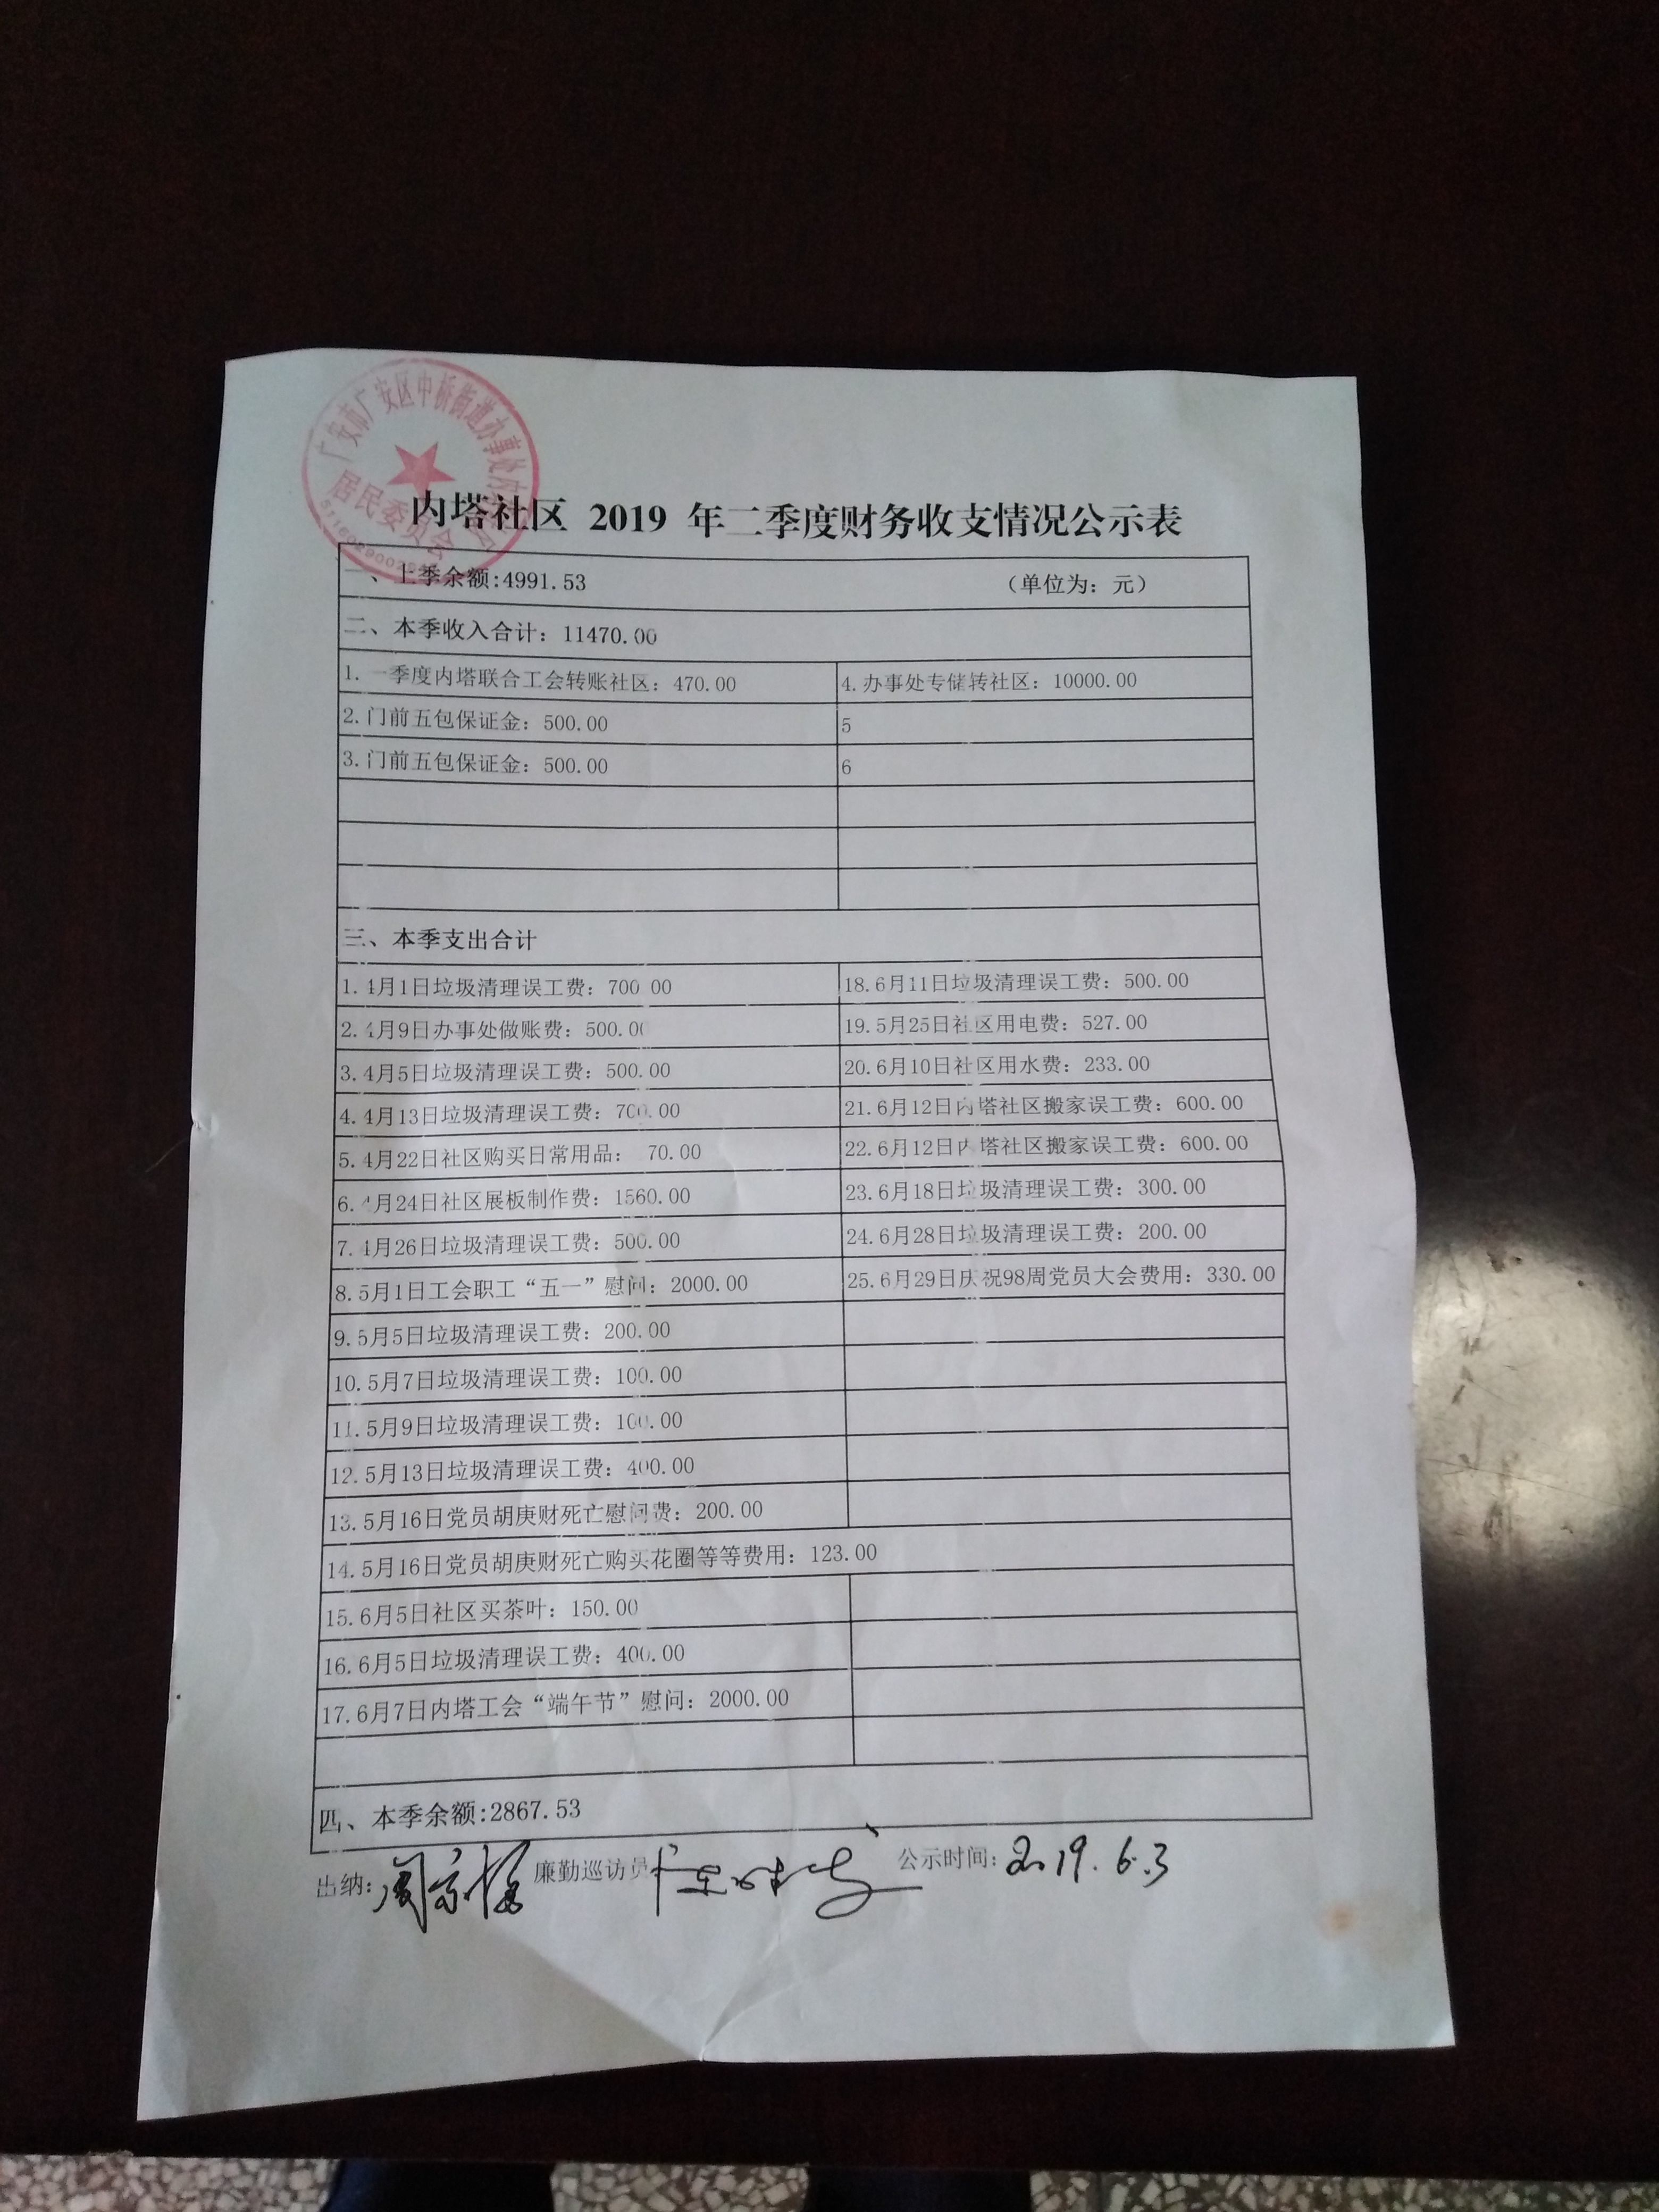 广安市广安区中桥街道办事处内塔
居民委员会
内塔社区 2019 年二季度财务收支情况公示表
一、上季余额:4991.53 （单位为：元）
二、本季收入合计：11470.00
1.一季度内塔联合工会转账社区：470.00 4.办事处专储转社区：10000.00
2.门前五包保证金：500.00 5
3.门前五包保证金：500.00 6
三、本季支出合计
1.4月1日垃圾清理误工费：700.00 18.6月11日垃圾清理误工费：500.00
2.4月9日办事处做账费：500.00 19.5月25日社区用电费：527.00
3.4月5日垃圾清理误工费：500.00 20.6月10日社区用水费：233.00
4.4月13日垃圾清理误工费：700.00 21.6月12日内塔社区搬家误工费：600.00
5.4月22日社区购买日常用品： 70.00 22.6月12日内塔社区搬家误工费：600.00
6.4月24日社区展板制作费：1560.00 23.6月18日垃圾清理误工费：300.00
7.4月26日垃圾清理误工费：500.00 24.6月28日垃圾清理误工费：200.00
8.5月1日工会职工“五一”慰问：2000.00 25.6月29日庆祝98周党员大会费用：330.00
9.5月5日垃圾清理误工费：200.00
10.5月7日垃圾清理误工费：100.00
11.5月9日垃圾清理误工费：100.00
12.5月13日垃圾清理误工费：400.00
13.5月16日党员胡庚财死亡慰问费：200.00
14.5月16日党员胡庚财死亡购买花圈等等费用：123.00
15.6月5日社区买茶叶：150.00
16.6月5日垃圾清理误工费：400.00
17.6月7日内塔工会“端午节”慰问：2000.00
四、本季余额:2867.53
出纳： 廉勤巡访员 公示时间：2019.6.3